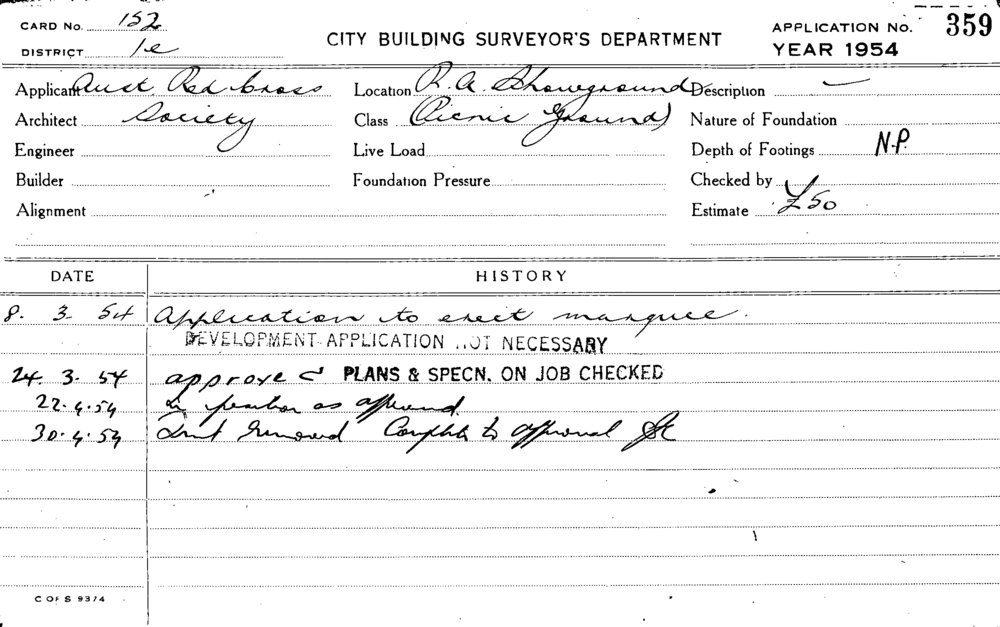 CARD No. 152
DISTRICT 1e
CITY BUILDING SURVEYOR'S DEPARTMENT
APPLICATION No. 359
YEAR 1954
Applicant Aust. Red Cross
Location R.A. Showground
Description —
Architect Society
Class (Picnic Ground)
Nature of Foundation
Engineer
Live Load
Depth of Footings N.P.
Builder
Foundation Pressure
Checked by
Alignment
Estimate £50
DATE HISTORY
8. 3. 54 Application to erect marquee.
DEVELOPMENT APPLICATION NOT NECESSARY
24. 3. 54 approved PLANS & SPECN. ON JOB CHECKED
22.4.54 In position as approved
30.4.54 Tent removed Complete to approval
C OF S 9374